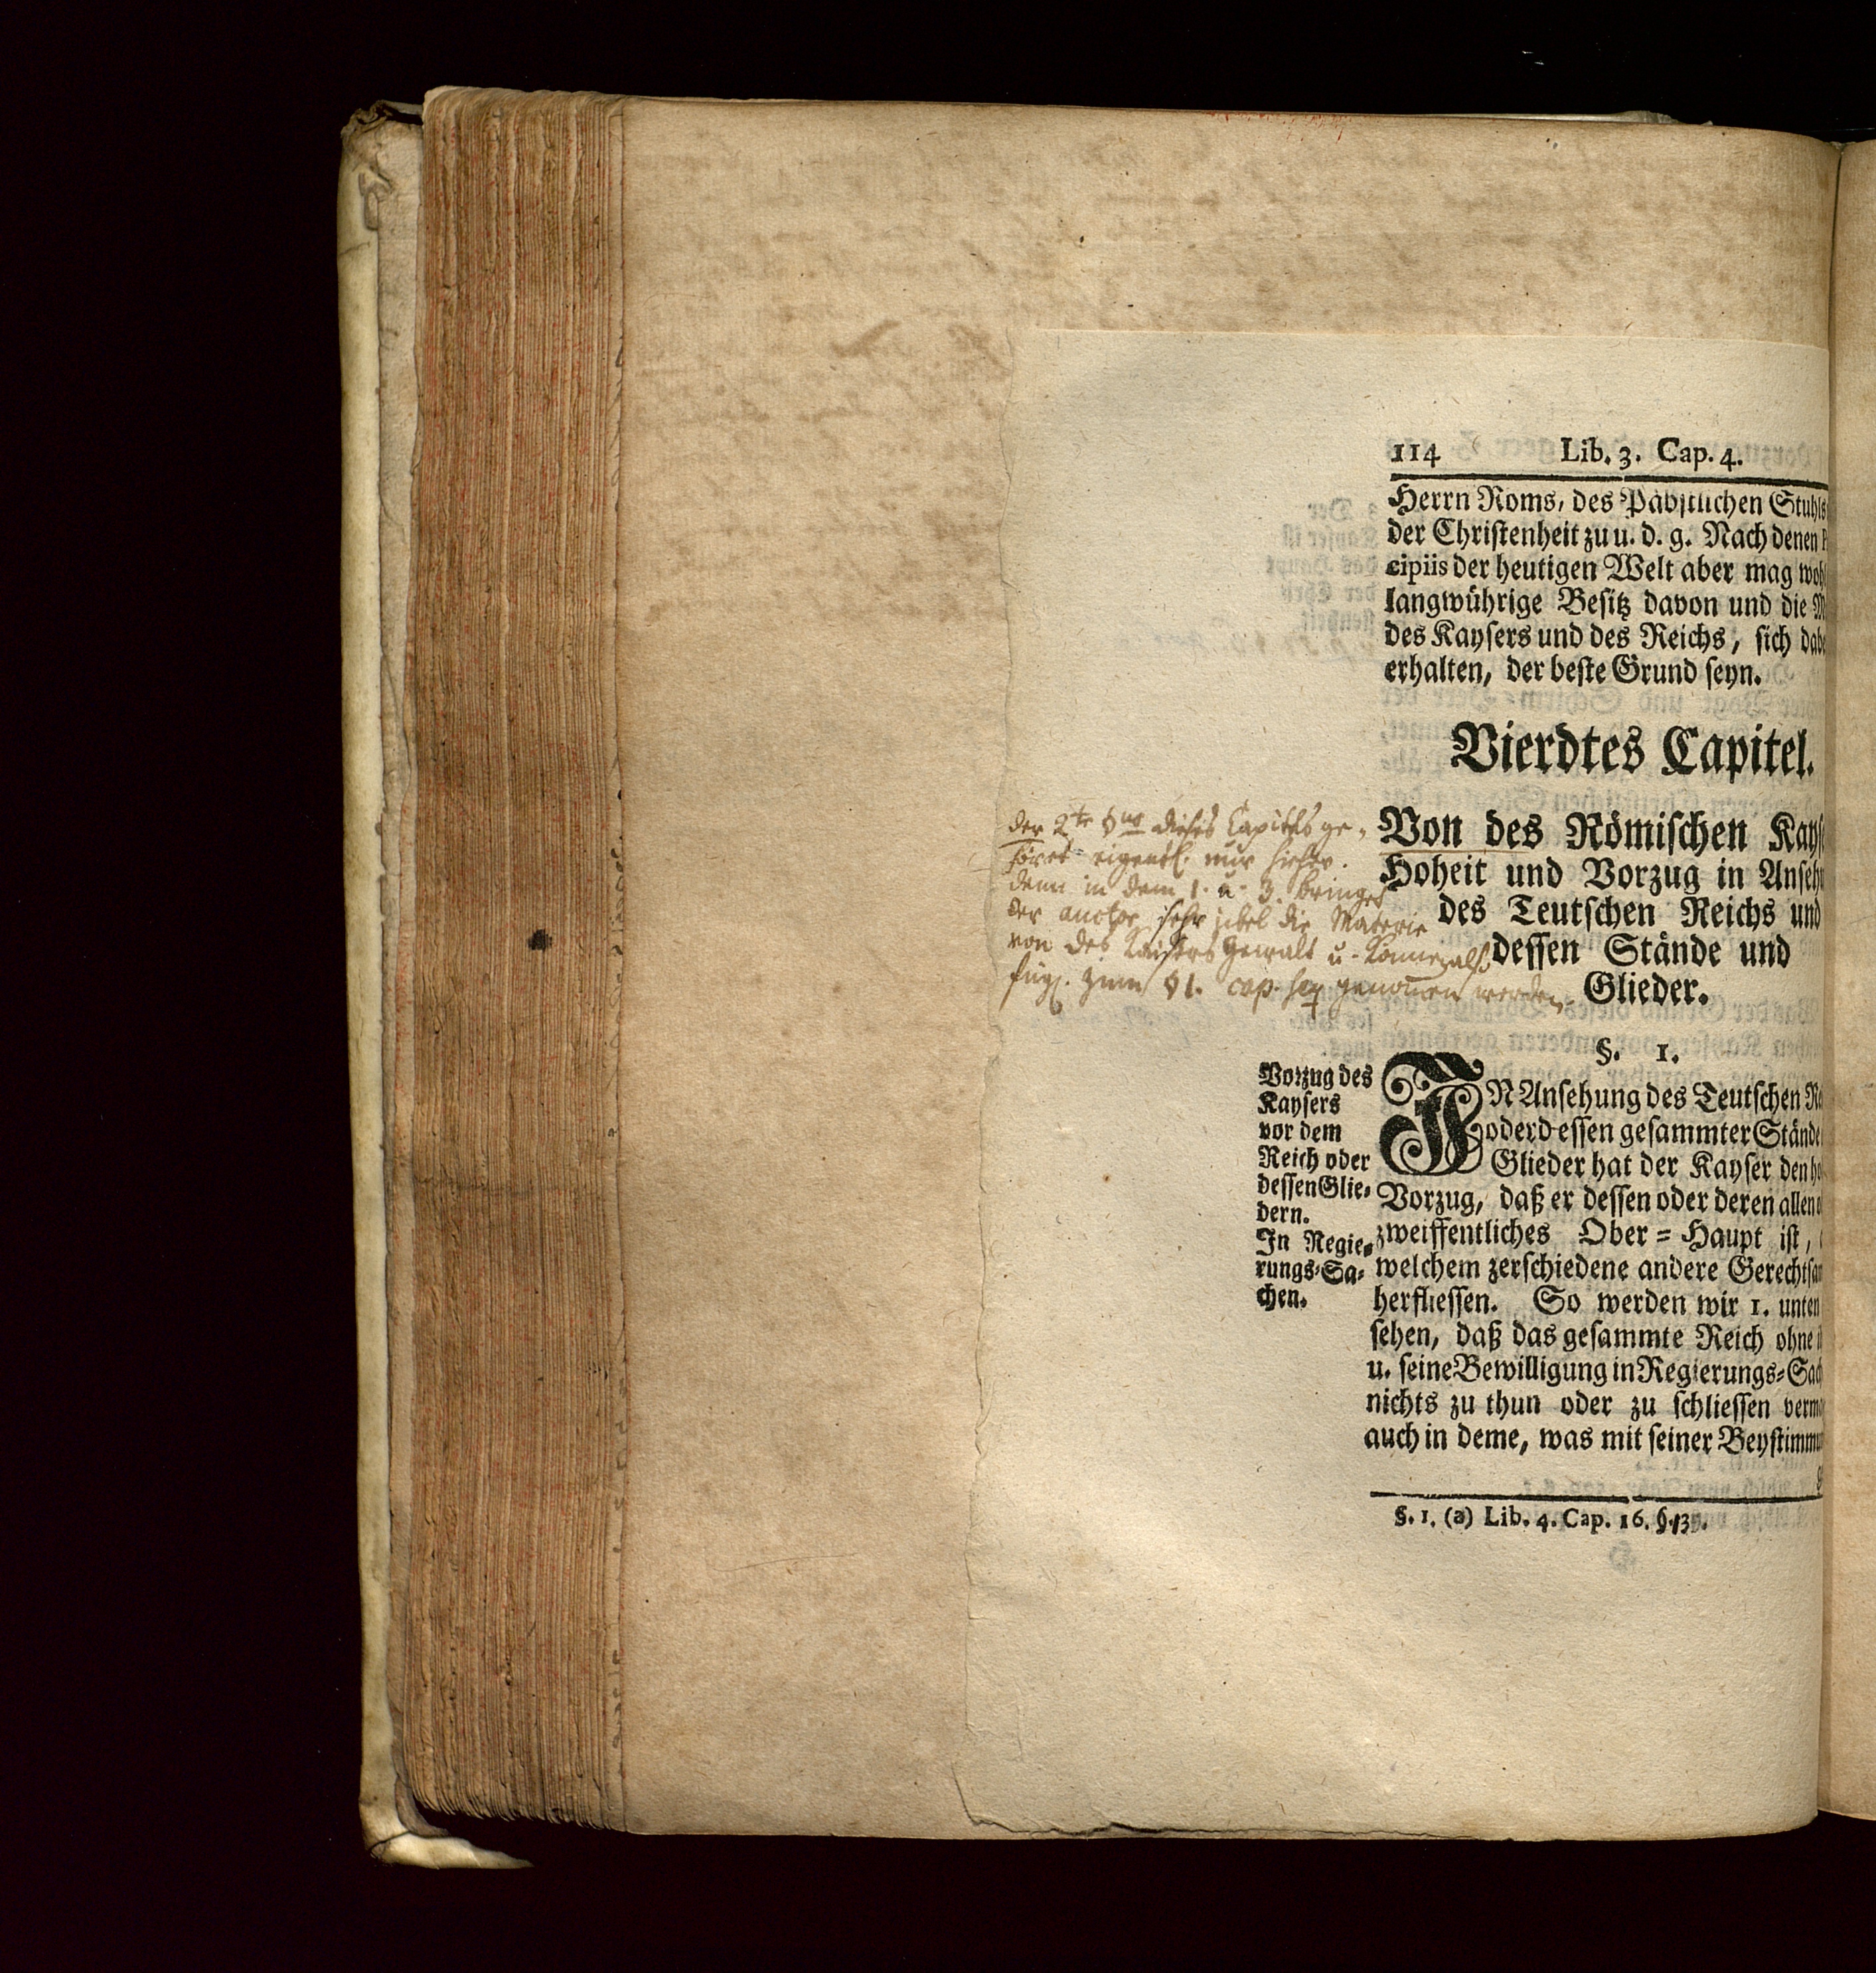 114 Lib. 3. Cap. 4.
Herrn Roms, des Päbstlichen Stuhls
der Christenheit zu u. d. g. Nach denen
cipiis der heutigen Welt aber mag
langwührige Besitz davon und die
des Kaysers und des Reichs, sich
erhalten, der beste Grund seyn.
Vierdtes Capitel.
Von des Römischen
Hoheit und Vorzug in
des Teutschen Reichs und
dessen Stände und
Glieder.
der 2te §us dieses Capitels ge-
höret eigentl. nur hieher.
denn in dem 1. u. 3. bringet
der auctor sehr übel die Materie
von des Kaisers Gewalt u. Könne also
fügl. zum §1. cap. seq genom̄en werden.
§. 1.
Vorzug des
Kaysers
vor dem
Reich oder
dessen Glie-
dern.
In Regie-
rungs-Sa-
chen.
IN Ansehung des Teutschen
oder dessen gesammter Stände
Glieder hat der Kayser den
Vorzug, daß er dessen oder deren allen
zweiffentliches Ober-Haupt ist,
welchem zerschiedene andere
herfliessen. So werden wir 1. unten
sehen, daß das gesammte Reich ohne
u. seine Bewilligung in Regierungs-
nichts zu thun oder zu schliessen
auch in deme, was mit seiner
§. 1. (a) Lib. 4. Cap. 16.